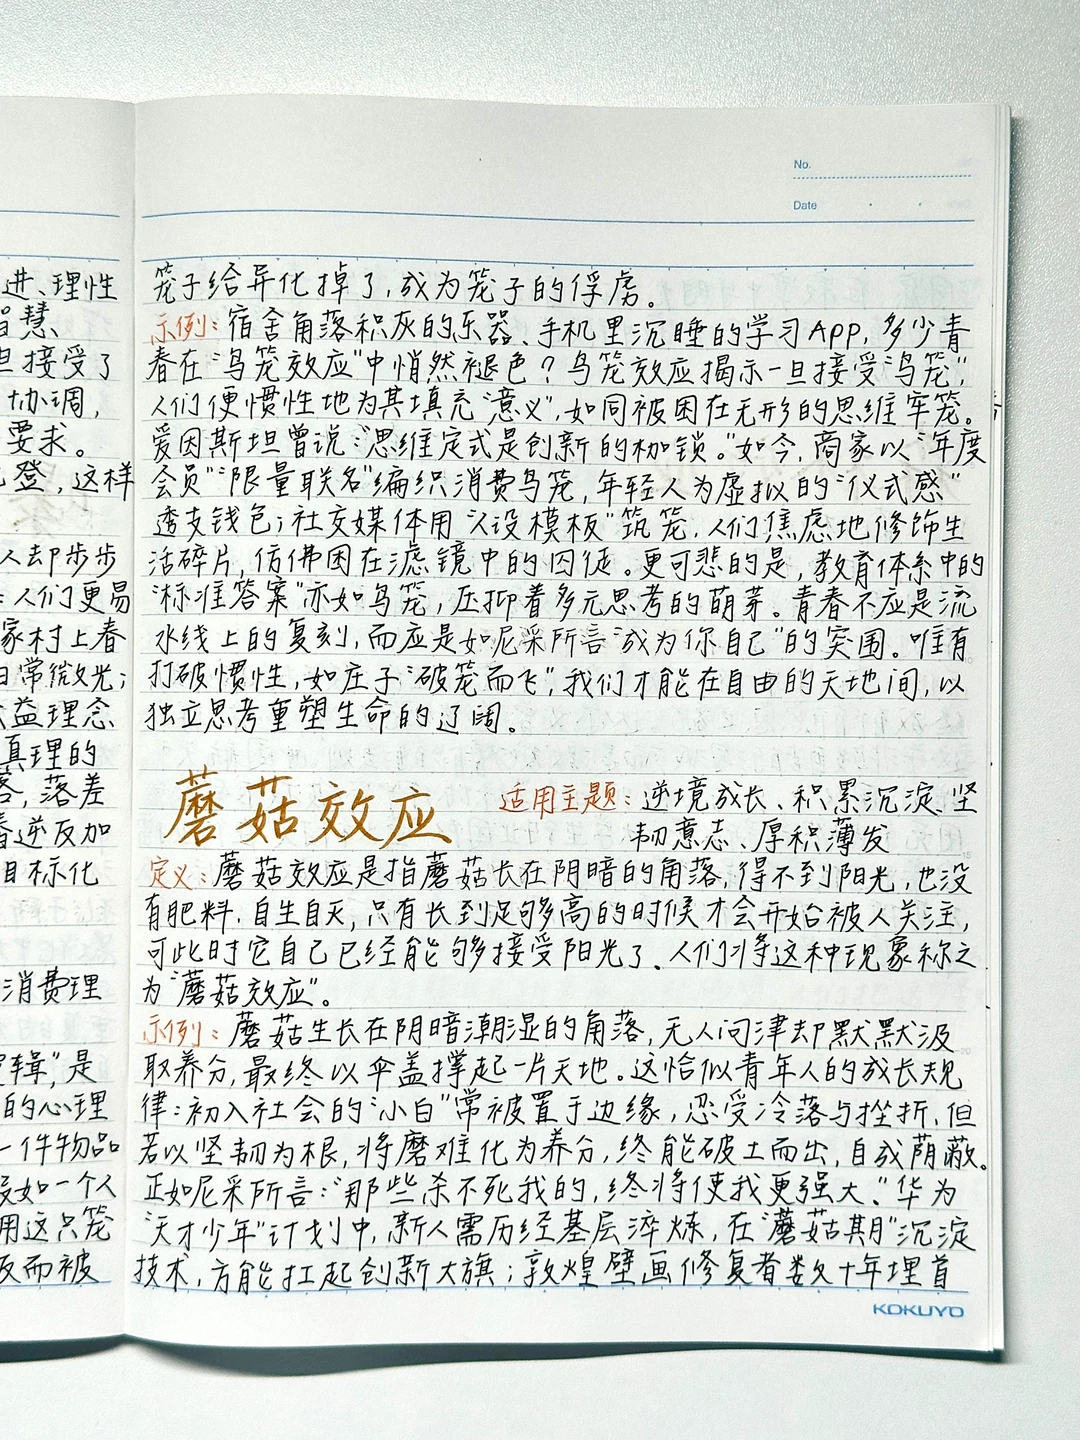 进、理性
智慧
旦接受了
协调,
要求。
登,这样
人却步步
人们更易
家村上春
日常微光;
益理念
真理的
落,落差
春逆反加
目标化
消费理
逻辑",是
的心理
一件物品
如一个人
用这只笼
反而被
No.
Date
笼子给异化掉了,成为笼子的俘虏。
示例:宿舍角落积灰的乐器、手机里沉睡的学习APP,多少青
春在"鸟笼效应"中悄然褪色?鸟笼效应揭示一旦接受"鸟笼",
人们便惯性地为其填充"意义",如同被困在无形的思维牢笼。
爱因斯坦曾说:"思维定式是创新的枷锁。"如今,商家以"年度
会员""限量联名"编织消费鸟笼,年轻人为虚拟的"仪式感"
透支钱包;社交媒体用"人设模板"筑笼,人们焦虑地修饰生
活碎片,仿佛困在滤镜中的囚徒。更可悲的是,教育体系中的
"标准答案"亦如鸟笼,压抑着多元思考的萌芽。青春不应是流
水线上的复刻,而应是如尼采所言"成为你自己"的突围。唯有
打破惯性,如庄子"破笼而飞",我们才能在自由的天地间,以
独立思考重塑生命的辽阔。
蘑菇效应 适用主题:逆境成长、积累沉淀、坚
韧意志、厚积薄发
定义:蘑菇效应是指蘑菇长在阴暗的角落,得不到阳光,也没
有肥料,自生自灭,只有长到足够高的时候才会开始被人关注,
可此时它自己已经能够接受阳光了。人们将这种现象称之
为"蘑菇效应"。
示例:蘑菇生长在阴暗潮湿的角落,无人问津却默默汲
取养分,最终以伞盖撑起一片天地。这恰似青年人的成长规
律:初入社会的"小白"常被置于边缘,忍受冷落与挫折,但
若以坚韧为根,将磨难化为养分,终能破土而出,自成荫蔽。
正如尼采所言:"那些杀不死我的,终将使我更强大。"华为
"天才少年"计划中,新人需历经基层淬炼,在"蘑菇期"沉淀
技术,方能扛起创新大旗;敦煌壁画修复者数十年埋首
KOKUYO